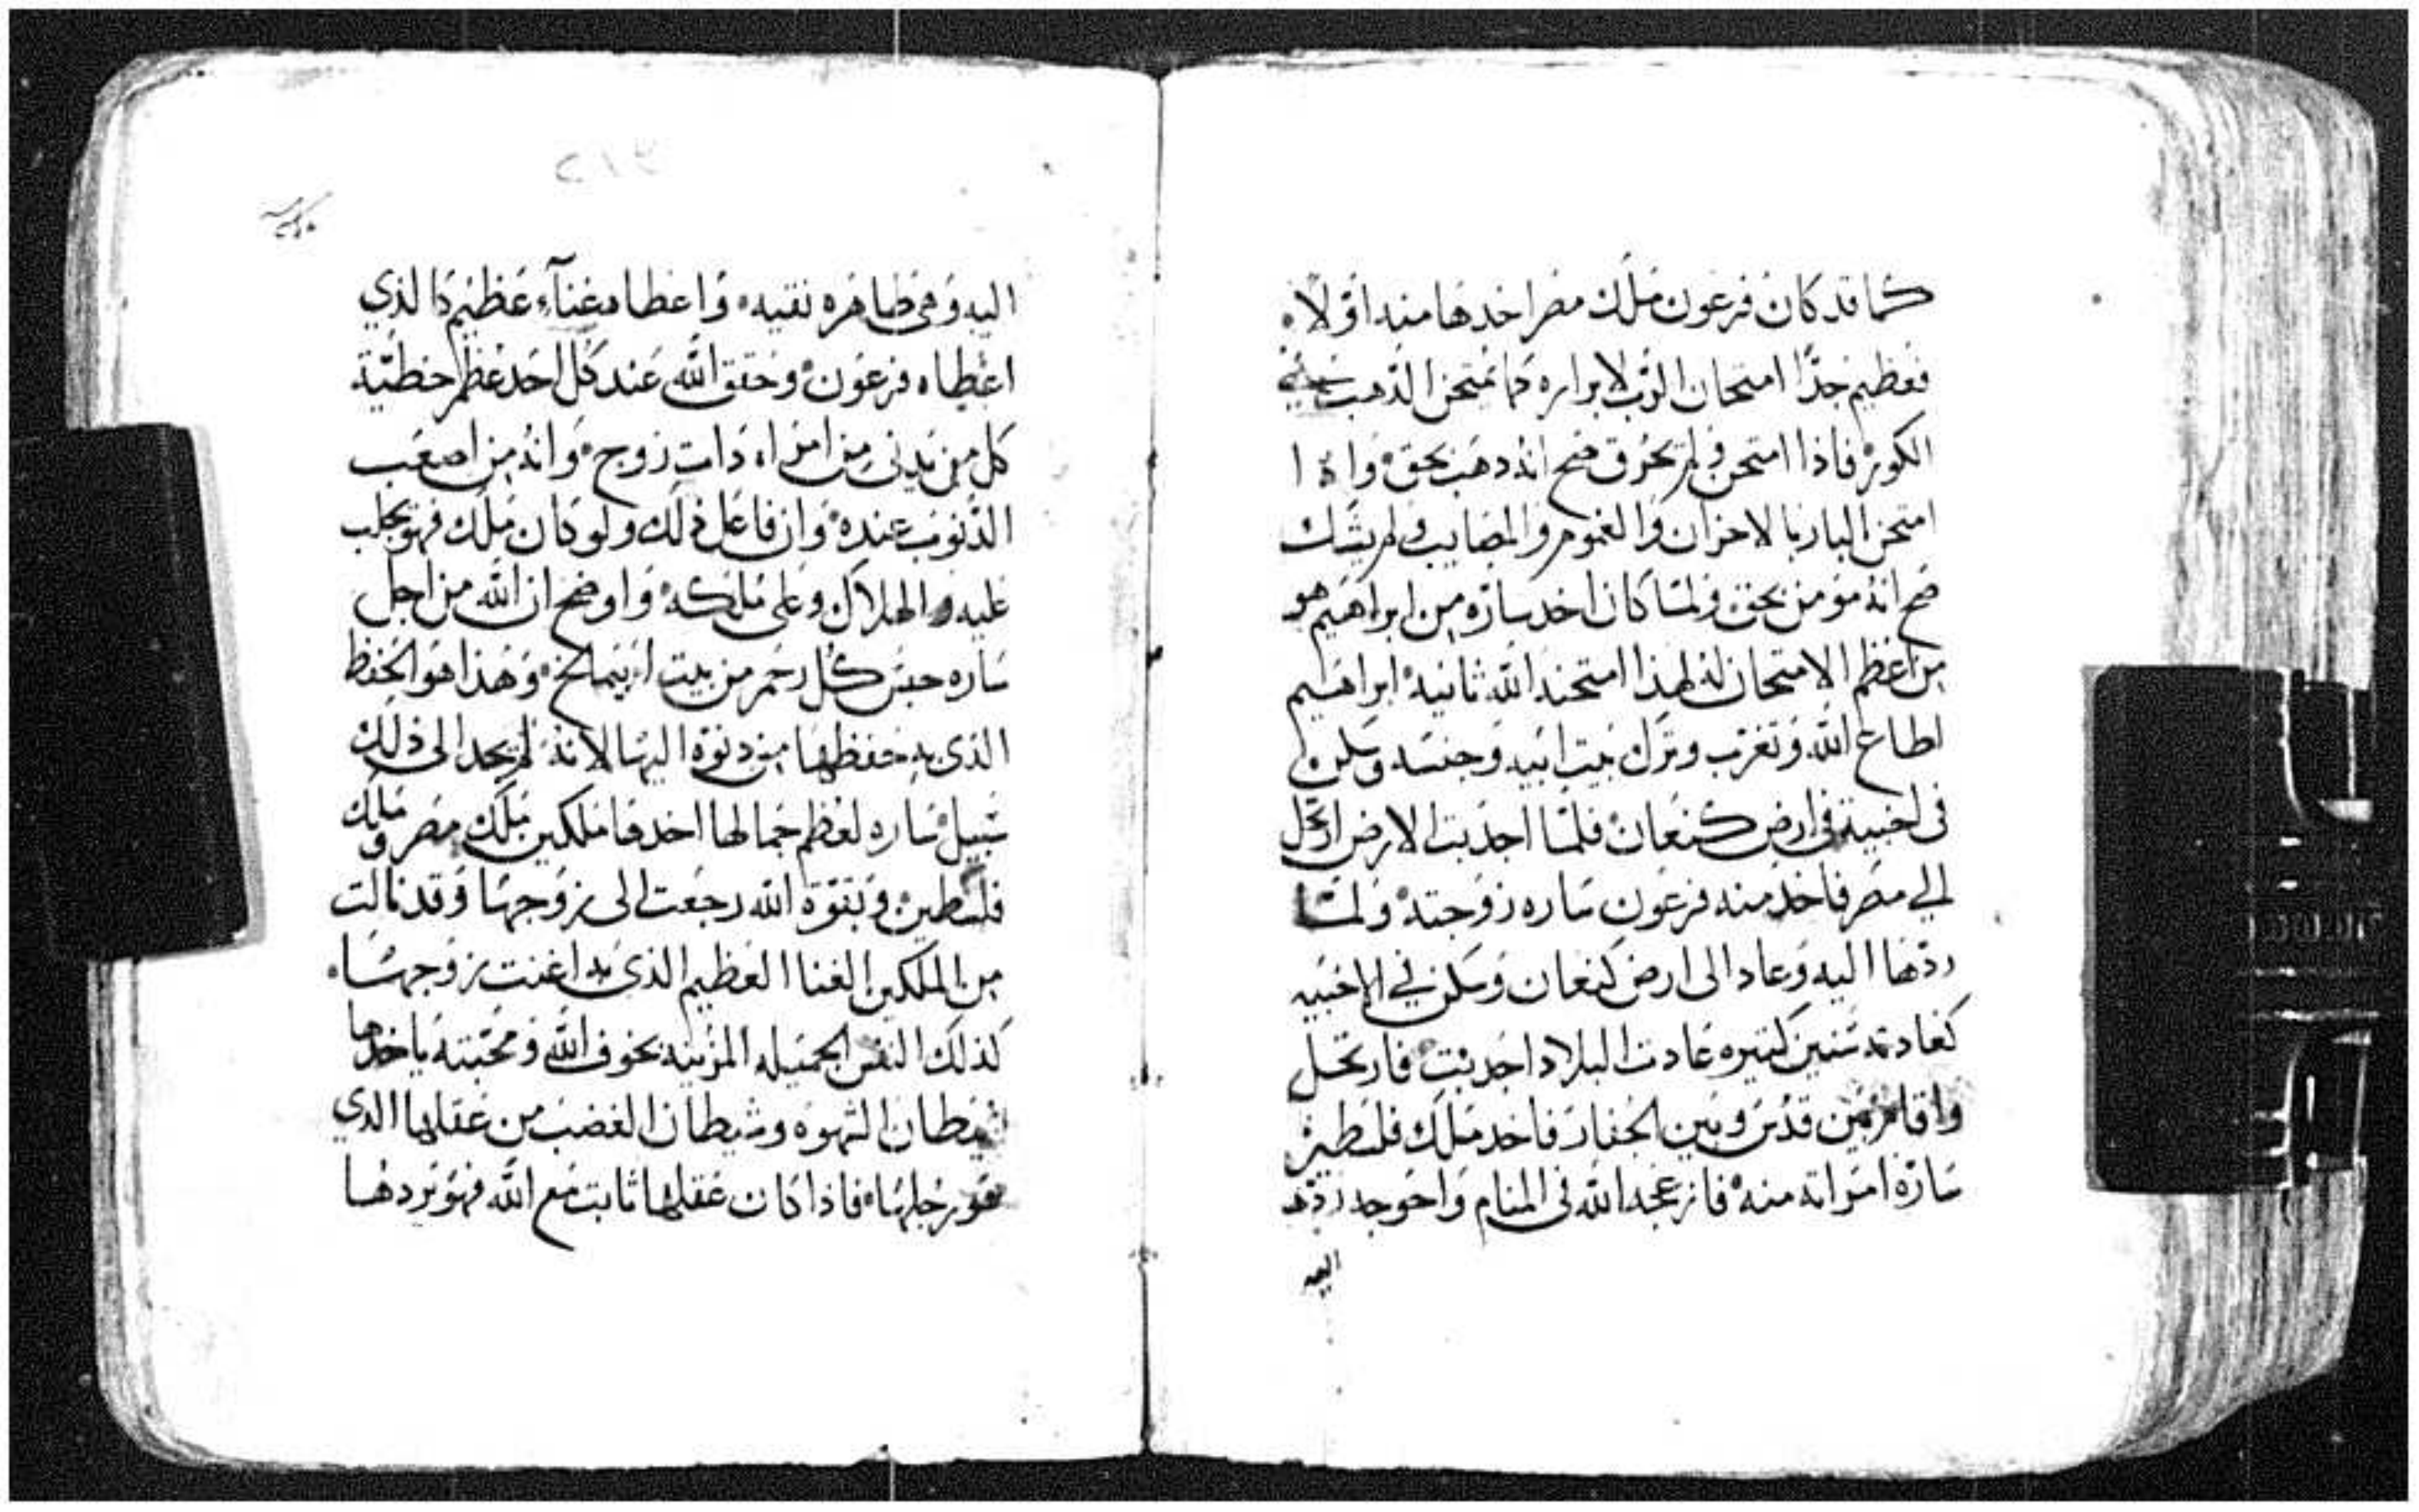 كما قد كان فرعون ملك مصر اخدها منه اولاً
فعظيم جدًا امتحان الرب لابراره كما يمتحن الذهب
الكور فاذا امتحن ولم يحرق صح انه دهب بحق واذا
امتحن البار بالاحزان والغموم والمصايب ولم يشك
صح انه مومن بحق ولما كان اخد ساره من ابراهيم هو
من اعظم الامتحان له لهذا امتحنه الله ثانيه ابراهيم
اطاع الله وتغرب وترك بيت ابيه وجنسه وسكن
فى اخبيه فى ارض كنعان فلما اجدبت الارض ارتحل
الي مصر فاخد منه فرعون ساره زوجته ولما
ردها اليه وعاد الى ارض كنعان وسكن في الاخبيه
كعادته سنين كتيره عادت البلاد اجدبت فارتحل
واقام بين قدس وبين الجفار فاخد ملك فلسطين
سارة امراته منه فازعجه الله فى المنام واحوجه ردها
اليه
اليه وهى طاهره نقيه واعطاه غناء عظيم كالذي
اعطاه فرعون وحقق الله عند كل احد عظم خطية
كل من يدنى من امراه دات زوج وانه من اصعب
الذنوب عنده وان فاعل ذلك ولو كان ملك فهو يجلب
عليه الهلاك وعلى ملكه واوضح ان الله من اجل
ساره حبس كل رحم من بيت ابيمالخ وهذا هو الحفظ
الذى به حفظها من دنوه اليها لانه لم يجد الى ذلك
سبيل ساره لعظم جمالها اخدها ملكين ملك مصر وملك
فلسطين وبقوة الله رجعت الى زوجها وقد نالت
من الملكين الغنا العظيم الذى به اغنت زوجها
كذلك النفس الجميله المزينه بخوف الله ومحبته ياخدها
شيطان الشهوه وشيطان الغضب من عقلها الدي
هو رجلها فاذا كان عقلها ثابت مع الله فهو يردها